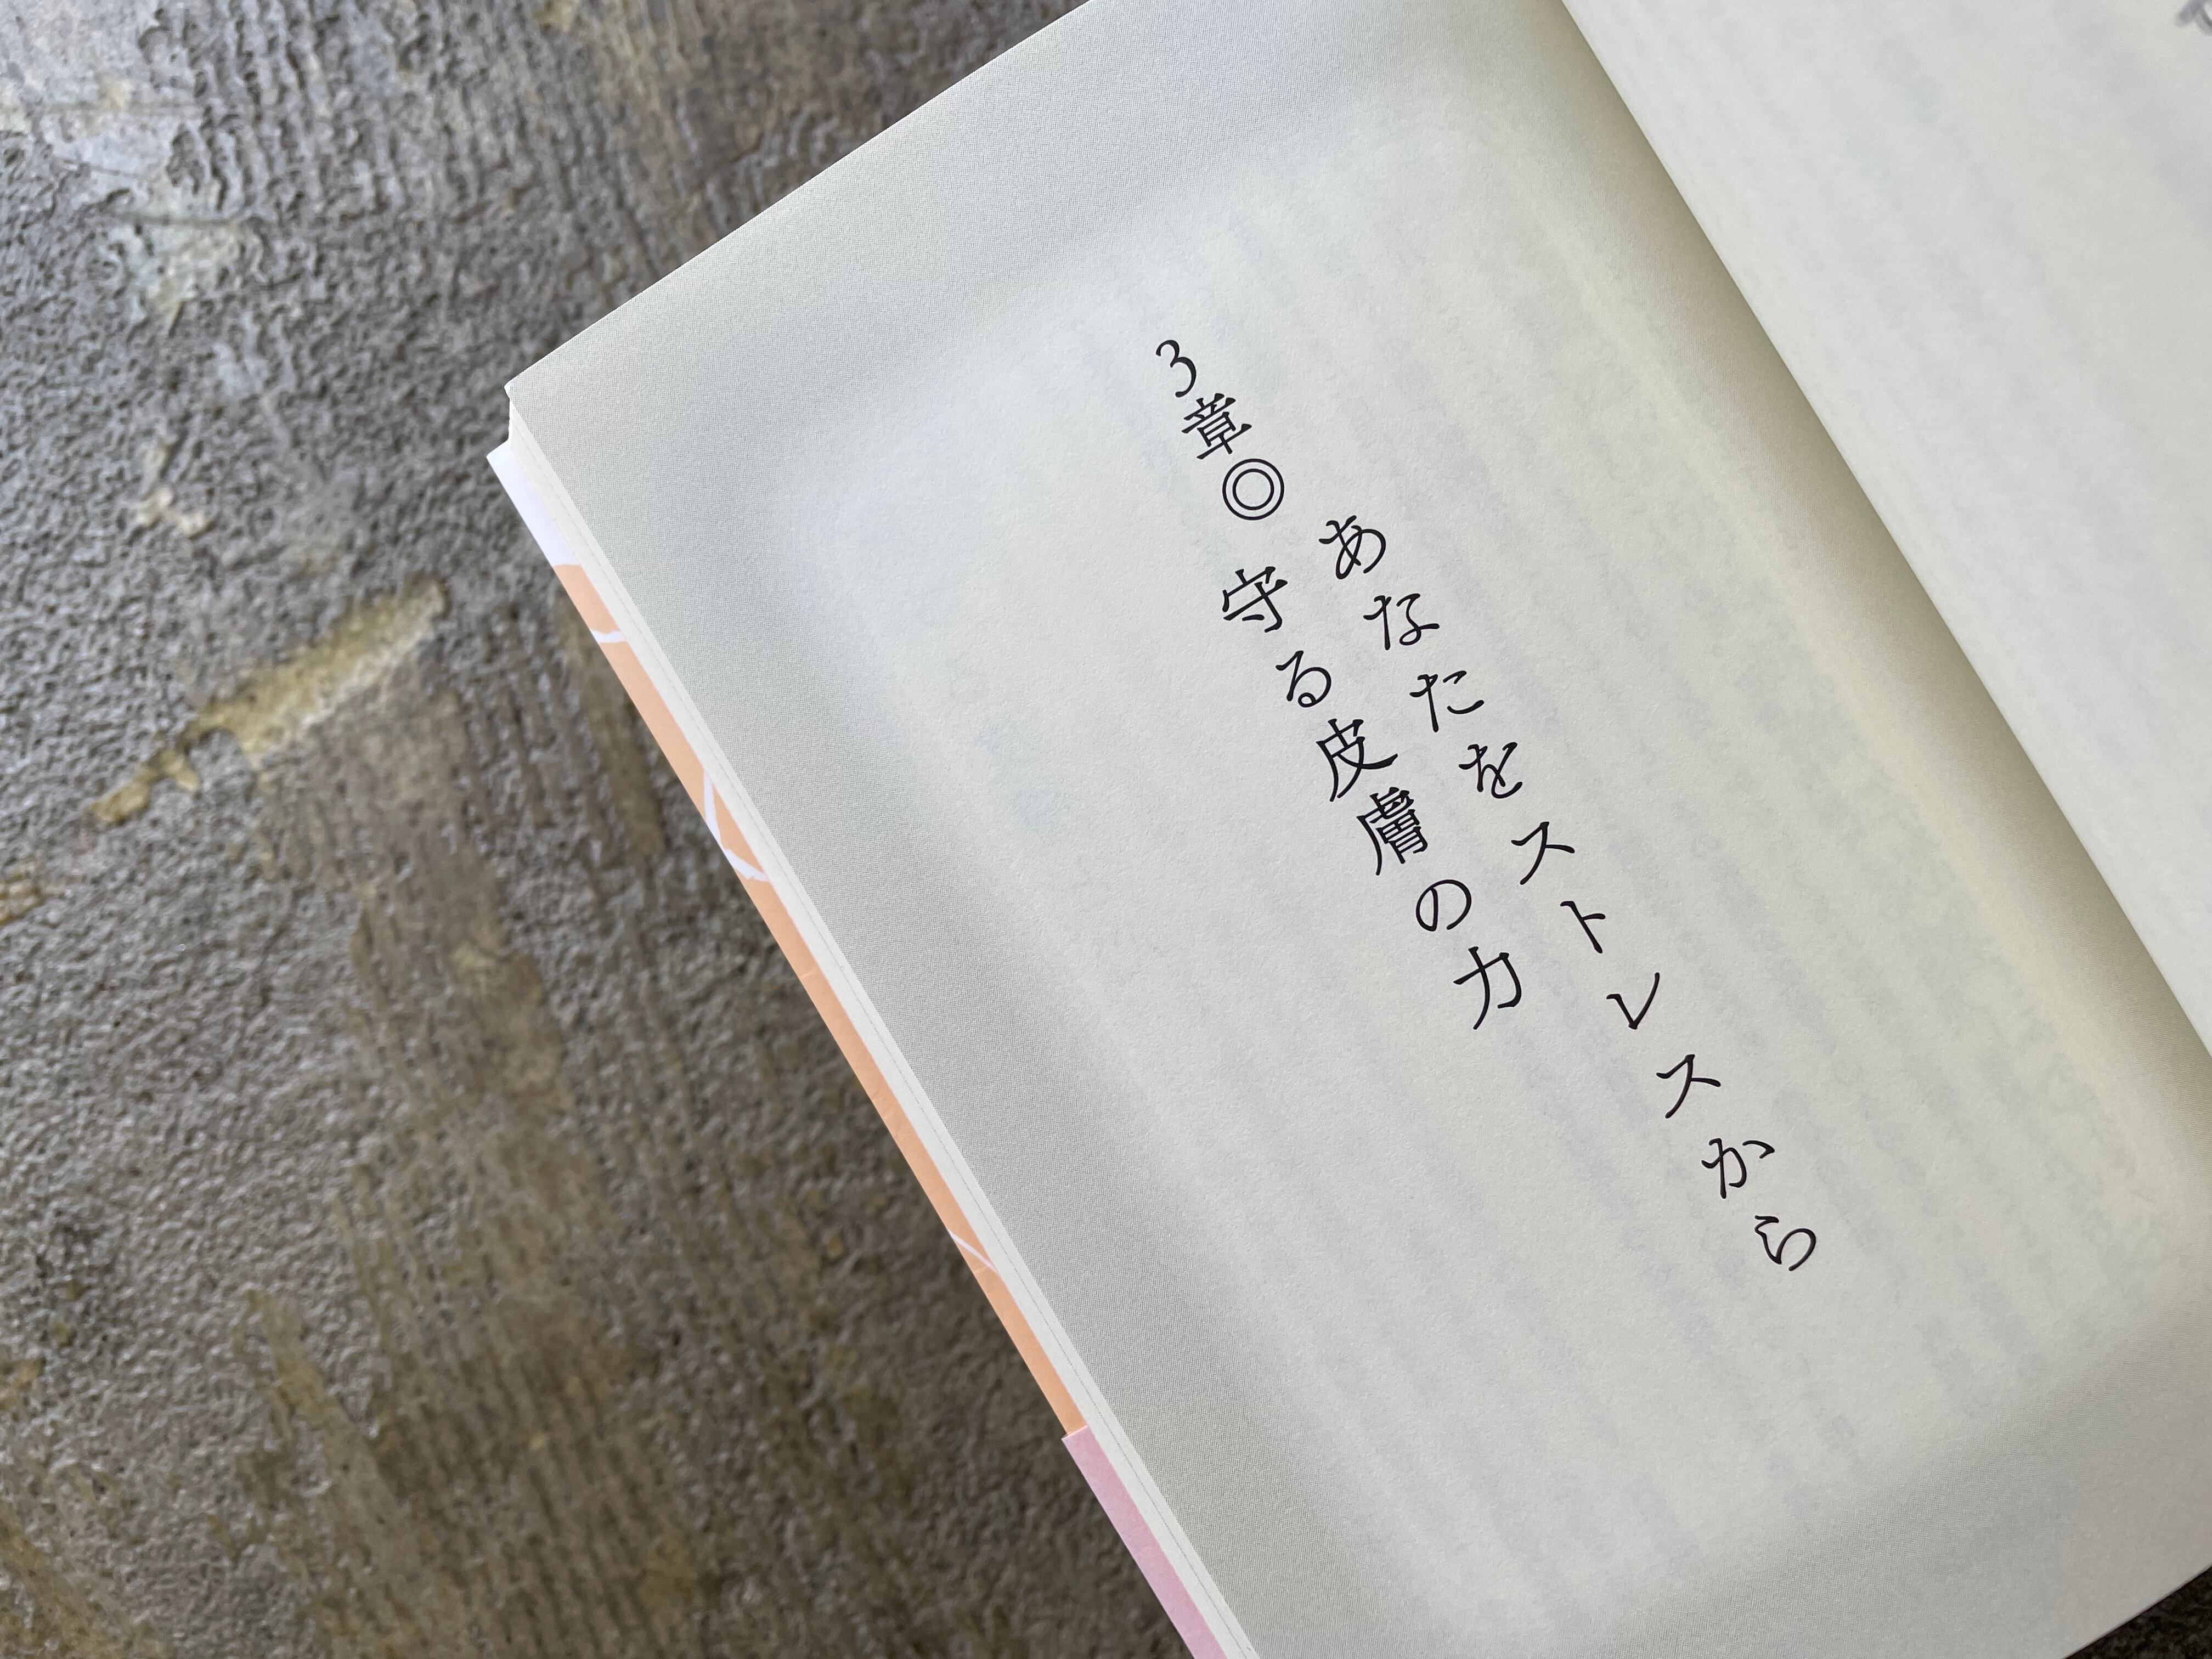 3章◎
あなたをストレスから
守る皮膚の力